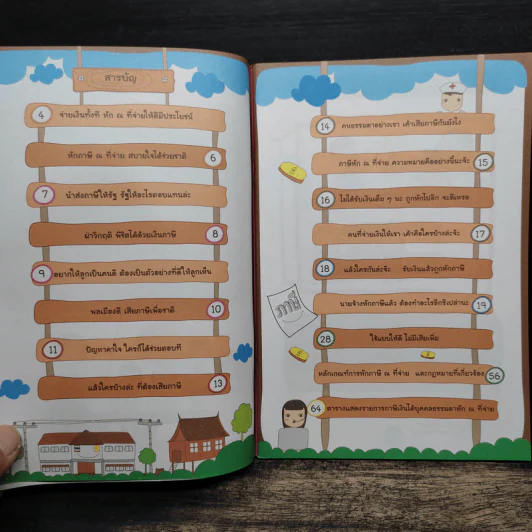 สารบัญ
4 จ่ายเงินทั้งที หัก ณ ที่จ่ายให้ดีมีประโยชน์
หักภาษี ณ ที่จ่าย สบายใจได้ร่วมชาติ 6
7 นำส่งภาษีให้รัฐ รัฐให้อะไรตอบแทนล่ะ
ฝ่าวิกฤติ พิชิตได้ด้วยเงินภาษี 8
9 อยากให้ลูกเป็นคนดี ต้องเป็นตัวอย่างที่ดีให้ลูกเห็น
พลเมืองดี เสียภาษีเพื่อชาติ 10
11 ปัญหาคาใจ ใครก็ได้ช่วยตอบที
แล้วใครบ้างล่ะ ที่ต้องเสียภาษี 13
14 คนธรรมดาอย่างเรา เค้าเสียภาษีกันยังไง
ภาษีหัก ณ ที่จ่าย ความหมายคืออย่างนี้นะจ๊ะ 15
16 ไม่ได้รับเงินเต็ม ๆ นะ ถูกหักไปอีก จะดีเหรอ
คนที่จ่ายเงินให้เรา เค้าคือใครบ้างล่ะจ๊ะ 17
18 แล้วใครกันล่ะจ๊ะ รับเงินแล้วถูกหักภาษี
นายจ้างหักภาษีแล้ว ต้องทำอะไรอีกรึเปล่านะ 19
ภาษี
28 ใช้แบบให้ดี ไม่มีเสียเพิ่ม
หลักเกณฑ์การหักภาษี ณ ที่จ่าย และกฎหมายที่เกี่ยวข้อง 56
64 ตารางแสดงรายการภาษีเงินได้บุคคลธรรมดาหัก ณ ที่จ่าย